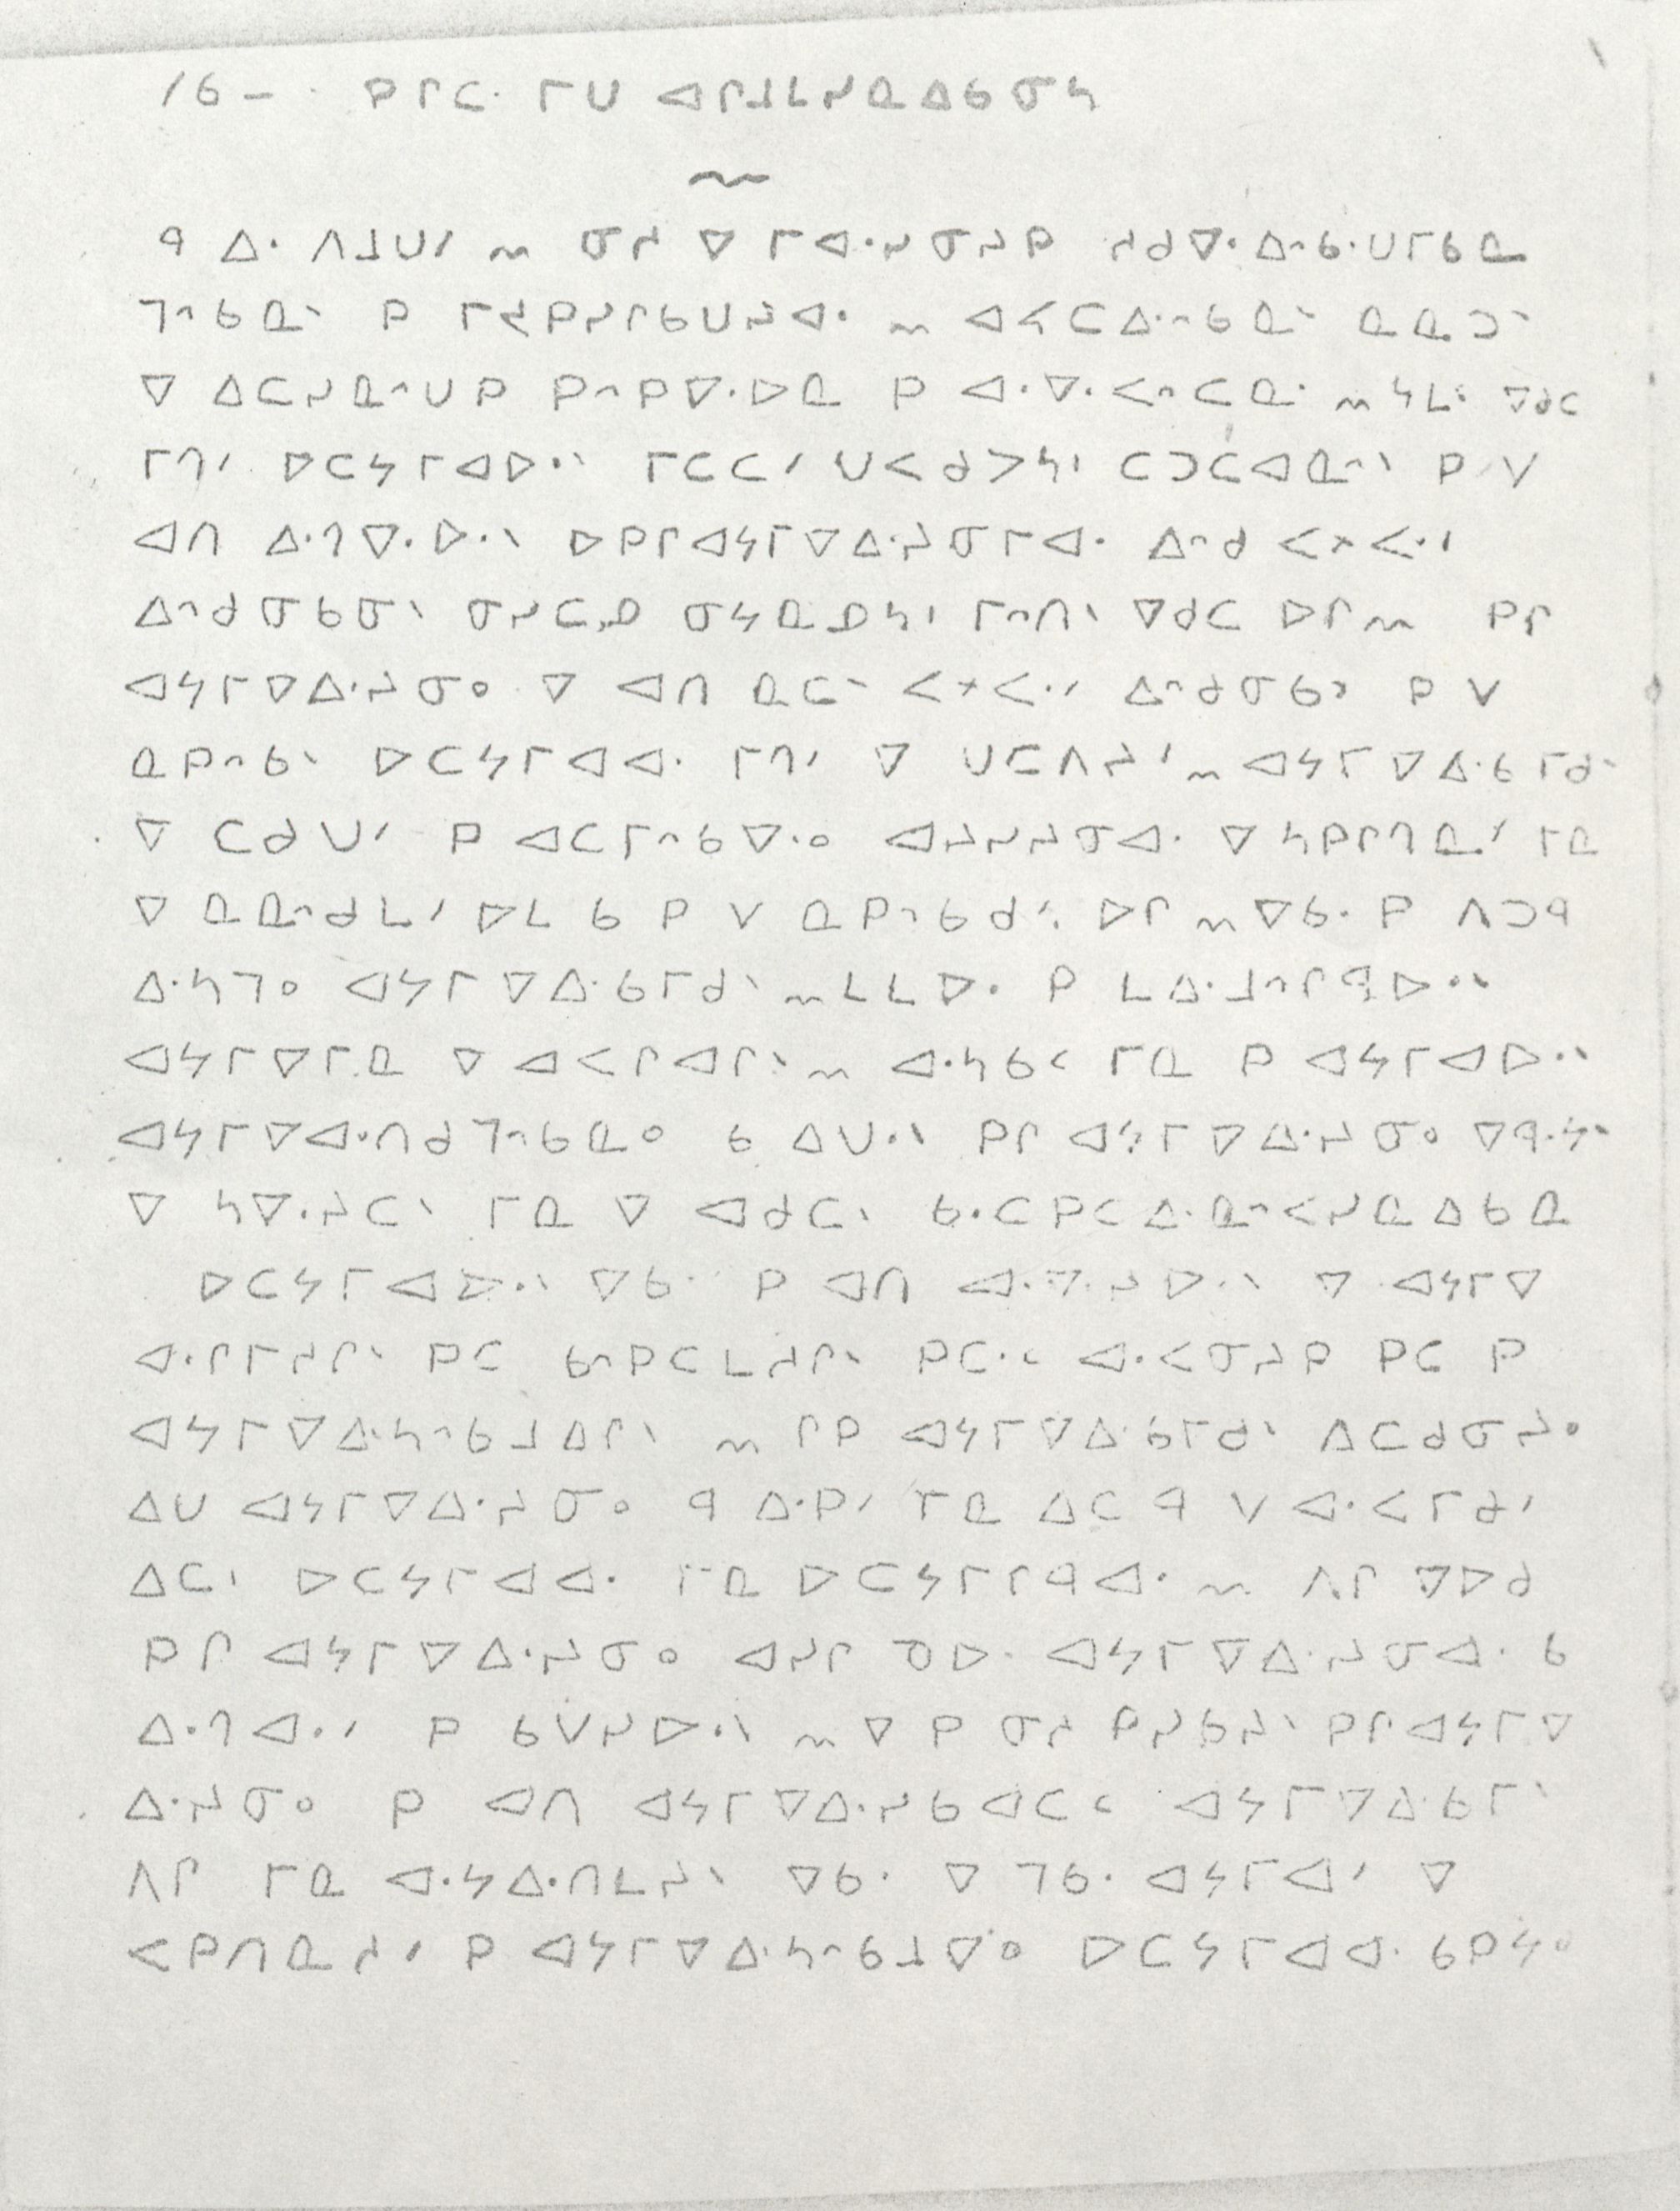 16 — ᑭᒋᑕ· ᒥᑌ ᐊᒋᒧᒪᓯᓇᐃᑲᓂᓴ
~
ᑫ ᐃ· ᐱᒧᑌᐟ ~ ᓂᓱ ᐁ ᒥᐊ·ᓯᓂᔨᑭ ᓱᑯᐁ·ᐃᐢᑲ·ᑌᒥᑲᓇ
ᒣᐢᑲᓇᐠ ᑭ ᒥᔪᑭᓯᒋᑲᑌᔨᐊ· ~ ᐊᐹᑕᐃ·ᐢᑲᓇᐠ ᓇᓇᑐᐠ
ᐁ ᐃᑕᓯᓇᐢᑌᑭ ᑭᐢᑭᐁ·ᐅᓇ ᑭ ᐊ·ᐁ·ᐸᐢᑕᓇ· ~ ᔕᒪᐠ ᐁᑯᑕ
ᒥᔐᐟ ᐅᑕᔭᒥᐊᐅ·ᐠ ᒥᑕᑕᐟ ᑌᐸᑯᐳᓴᐟ ᑕᑐᑕᐊᓇᐢᐠ ᑭ ᐯ
ᐊᑎ ᐃ·ᒉᐁ·ᐅ·ᐠ ᐅᑭᒋᐊᔭᒥᐁᐃ·ᔨᓂᒥᐊ· ᐃᐢᑯ ᐸᕽᐸ·ᐟ
ᐃᐢᑯᓂᑲᓂᐠ ᓂᓯᑕᓄ ᓂᔭᓇᓄᓴᐟ ᒥᐢᑎᐠ ᐁᑯᑕ ᐅᒋ ~ ᑭᒋ
ᐊᔭᒥᐁᐃ·ᔨᓂᐤ ᐁ ᐊᑎ ᓇᑕᐠ ᐸᕽᐸ·ᐟ ᐃᐢᑯᓂᑲᐣ ᑭ ᐯ
ᓇᑭᐢᑲᐠ ᐅᑕᔭᒥᐊᐊ· ᒥᔐᐟ ᐁ ᑌᑕᐱᔨᐟ ~ ᐊᔭᒥᐁᐃ·ᑲᒥᑯᐠ
ᐁ ᑕᑯᑌᐟ ᑭ ᐊᑕᒥᐢᑲᐁ·ᐤ ᐊᔨᓯᔨᓂᐊ· ᐁ ᓴᑭᒋᒉᓇᐟ ᒥᓇ
ᐁ ᓇᓇᐢᑯᒪᐟ ᐅᒪ ᑲ ᑭ ᐯ ᓇᑭᐢᑲᑯᐟ ᐅᒋ ~ ᐁᑲ· ᑭ ᐱᑐᑫ
ᐃ·ᓴᒣᐤ ᐊᔭᒥᐁᐃ·ᑲᒥᑯᐠ ~ ᒪᒪᐅ· ᑭ ᒪᐃ·ᒧᐢᒋᑫᐅ·ᐠ
ᐊᔭᒥᐁᒥᓇ ᐁ ᐊᐸᒋᐊᒋᐠ ~ ᐊ·ᓴᑲᑦ ᒥᓇ ᑭ ᐊᔭᒥᐊᐅ·ᐠ
ᐊᔭᒥᐁᐊ·ᑎᑯᒣᐢᑲᓇᐤ ᑲ ᐃᑌ·ᐠ ᑭᒋ ᐊᔭᒥᐁᐃ·ᔨᓂᐤ ᐁᑫ·ᔭᐠ
ᐁ ᓴᐁ·ᔨᑕᐠ ᒥᓇ ᐁ ᐊᑯᑕᐠ ᑲ·ᑕᑭᑕᐃ·ᓇᐢᐸᓯᓇᐃᑲᓇ
ᐅᑕᔭᒥᐊᐅ·ᐠ ᐁᑲ· ᑭ ᐊᑎ ᐊ·ᐁ·ᔨᐅ·ᐠ ᐁ ᐊᔭᒥᐁ
ᐊ·ᒋᒥᓱᒋᐠ ᑭᑕ ᑲᐢᑭᑕᒪᓱᒋᐠ ᑭᑕ·ᑦ ᐊ·ᐸᓂᔨᑭ ᑭᑕ ᑭ
ᐊᔭᒥᐁᐃ·ᓴᐢᑲᒧᐃᒋᐠ ~ ᒋᑭ ᐊᔭᒥᐁᐃ·ᑲᒥᑯᐠ ᐱᑕᑯᓂᔨᐤ
ᐃᑌ ᐊᔭᒥᐁᐃ·ᔨᓂᐤ ᑫ ᐃ·ᑭᐟ ᒥᓇ ᐃᑕ ᑫ ᐯ ᐊ·ᐸᒥᑯᐟ
ᐃᑕᐟ ᐅᑕᔭᒥᐊᐊ· ᒥᓇ ᐅᑕᔭᒥᒋᑫᐊ· ~ ᐱᒋ ᐁᐅᑯ
ᑭᒋ ᐊᔭᒥᐁᐃ·ᔨᓂᐤ ᐊᓯᒋ ᑯᑕᐠ ᐊᔭᒥᐁᐃ·ᔨᓂᐊ· ᑲ
ᐃ·ᒉᐊ·ᐟ ᑭ ᑲᐯᓯᐅ·ᐠ ~ ᐁ ᑭ ᓂᓱ ᑭᓯᑲᔨᐠ ᑭᒋᐊᔭᒥᐁ
ᐃ·ᔨᓂᐤ ᑭ ᐊᑎ ᐊᔭᒥᐁᐃ·ᓯᑲᐊᑕᑦ ᐊᔭᒥᐁᐃ·ᑲᒥᐠ
ᐱᒋ ᒥᓇ ᐊ·ᔭᐃ·ᑎᒪᔨᐠ ᐁᑲ· ᐁ ᒣᑲ· ᐊᔭᒥᐊᐟ ᐁ
ᐸᑭᑎᓇᓱᐟ ᑭ ᐊᔭᒥᐁᐃ·ᓴᐢᑲᒧᐁ·ᐤ ᐅᑕᔭᒥᐊᐊ· ᑲᑭᔭᐤ